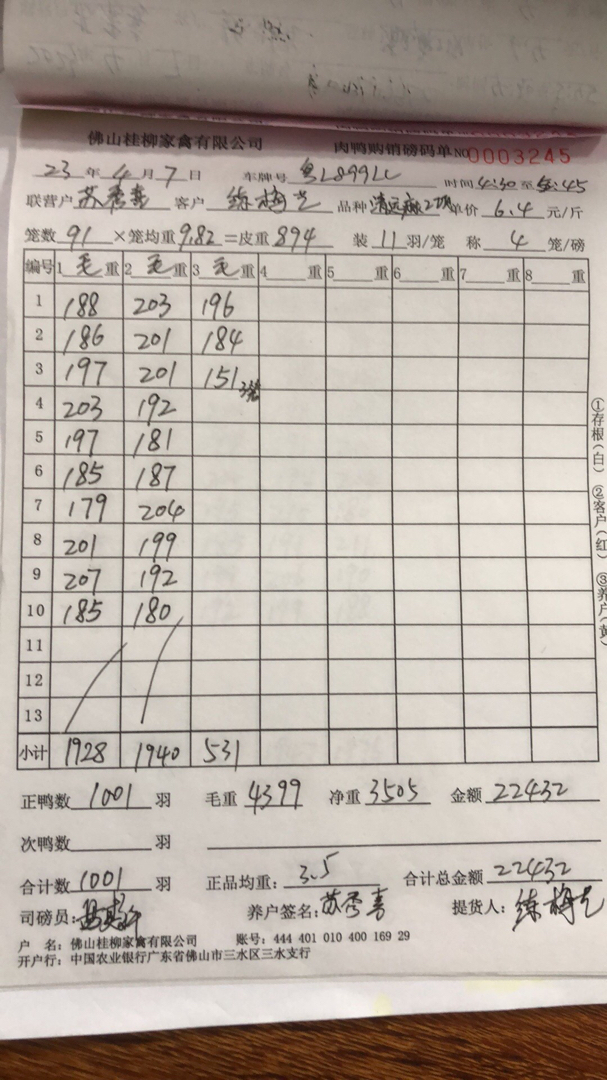 佛山桂柳家禽有限公司 肉鸭购销磅码单 No 0003245
23 年 4 月 7 日 车牌号 粤L8991C 时间 4:30 至 5:45
联营户 苏秀喜 客户 练梅艺 品种 清远麻 单价 6.4 元/斤
笼数 91 ×笼均重 9.82 =皮重 894 装 11 羽/笼 称 4 笼/磅
编号 1 毛 重 2 毛 重 3 毛 重 4 重 5 重 6 重 7 重 8 重
1 188 203 196
2 186 201 184
3 197 201 151 3笼
4 203 192
5 197 181
6 185 187
7 179 204
8 201 199
9 207 192
10 185 180
11
12
13
小计 1928 1940 531
正鸭数 1001 羽 毛重 4399 净重 3505 金额 22432
次鸭数 羽
合计数 1001 羽 正品均重: 3.5 合计总金额 22432
司磅员: 养户签名: 苏秀喜 提货人: 练梅艺
户 名: 佛山桂柳家禽有限公司 账号: 444 401 010 400 169 29
开户行: 中国农业银行广东省佛山市三水区三水支行
①存根(白) ②客户(红) ③养户(黄)